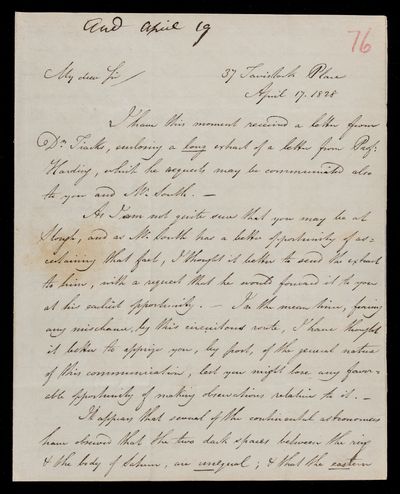 And April 19
76
My dear Sir
37 Tavistock Place
April 17. 1828
I have this moment received a letter from
Dr. Tiarks, enclosing a long extract of a letter from Prof:
Harding, which he requests may be communicated also
to you and Mr. South. —
As I am not quite sure that you may be at
Slough, and as Mr. South has a better opportunity of as=
certaining that fact, I thought it better to send the extract
to him, with a request that he would forward it to you
at his earliest opportunity. — In the mean time, fearing
any mischance, by this circuitous route, I have thought
it better to apprize you, by post, of the general nature
of this communication, lest you might lose any favor=
able opportunity of making observations relative to it. —
It appears that several of the continental astronomers
have observed that the two dark spaces between the ring
& the body of Saturn, are unequal; & that the eastern